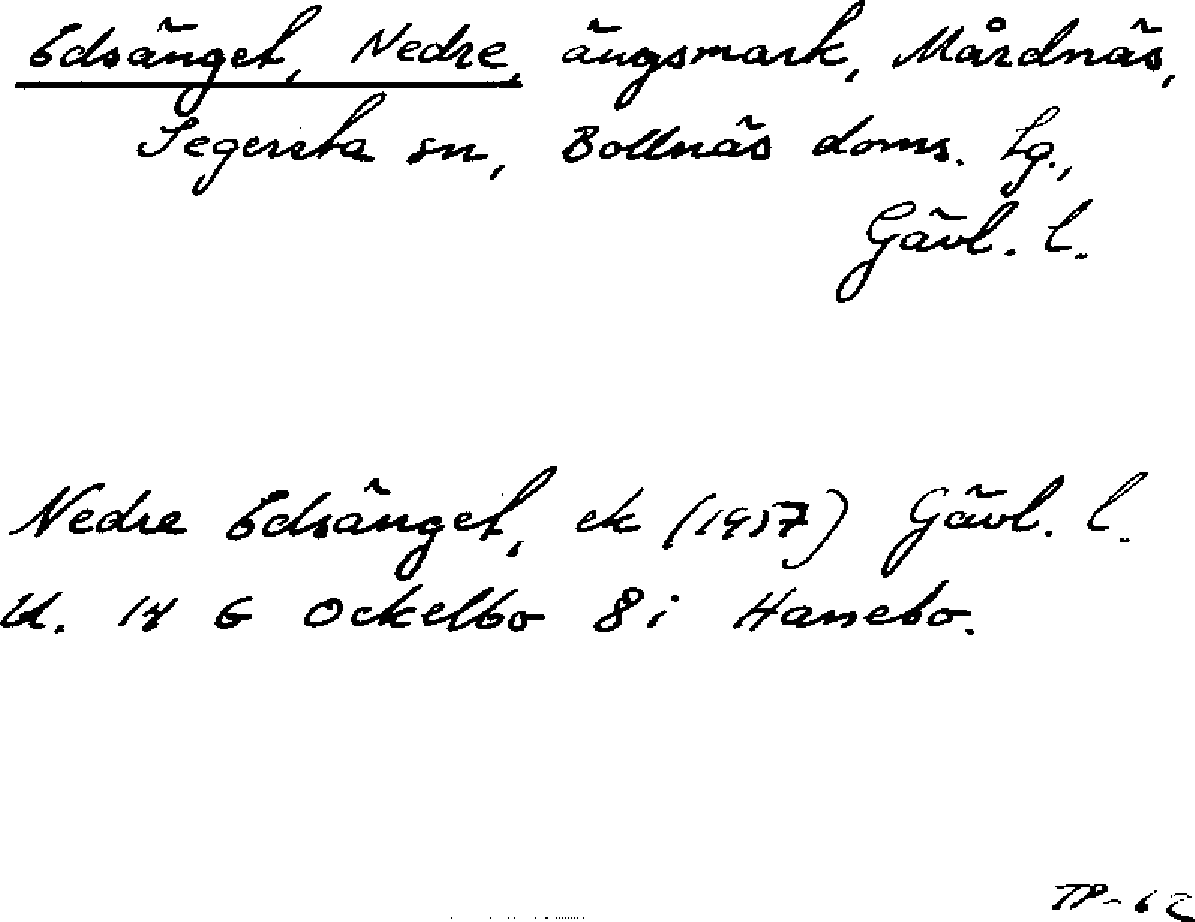 Edsänget, Nedre, ängsmark, Mårdnäs,
Segersta sn, Bollnäs doms. Lg.,
Gävl. l.
Nedre Edsänget, ek (1957) Gävl. l.
bl. 14 G Ockelbo 8i Hanebo.
TP-62